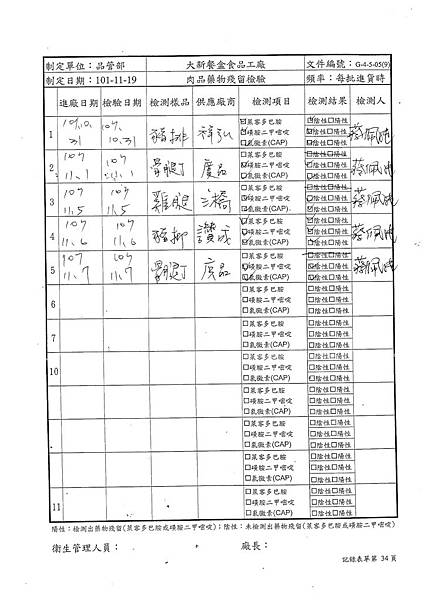 制定單位：品管部 大新餐盒食品工廠 文件編號：G-4-5-05(9)
制定日期：101-11-19 肉品藥物殘留檢驗 頻率：每批進貨時
進廠日期 檢驗日期 檢測樣品 供應廠商 檢測項目 檢測結果 檢測人
1 107.10.31 107.10.31 豬排 祥弘 ☑萊客多巴胺 ☑陰性□陽性 蔡佩
☑磺胺二甲嘧啶 ☑陰性□陽性
□氯黴素(CAP) □陰性□陽性
2 107.11.1 107.11.1 骨腿丁 度品 □萊客多巴胺 □陰性□陽性 蔡佩
☑磺胺二甲嘧啶 ☑陰性□陽性
☑氯黴素(CAP) ☑陰性□陽性
3 107.11.5 107.11.5 雞腿 三橋 □萊客多巴胺 □陰性□陽性 蔡佩
☑磺胺二甲嘧啶 ☑陰性□陽性
☑氯黴素(CAP) ☑陰性□陽性
4 107.11.6 107.11.6 豬柳 讚成 ☑萊客多巴胺 ☑陰性□陽性 蔡佩
☑磺胺二甲嘧啶 ☑陰性□陽性
□氯黴素(CAP) □陰性□陽性
5 107.11.7 107.11.7 骨腿丁 度品 □萊客多巴胺 □陰性□陽性 蔡佩
☑磺胺二甲嘧啶 ☑陰性□陽性
☑氯黴素(CAP) ☑陰性□陽性
6 □萊客多巴胺 □陰性□陽性
□磺胺二甲嘧啶 □陰性□陽性
□氯黴素(CAP) □陰性□陽性
7 □萊客多巴胺 □陰性□陽性
□磺胺二甲嘧啶 □陰性□陽性
□氯黴素(CAP) □陰性□陽性
10 □萊客多巴胺 □陰性□陽性
□磺胺二甲嘧啶 □陰性□陽性
□氯黴素(CAP) □陰性□陽性
□萊客多巴胺 □陰性□陽性
□磺胺二甲嘧啶 □陰性□陽性
□氯黴素(CAP) □陰性□陽性
□萊客多巴胺 □陰性□陽性
□磺胺二甲嘧啶 □陰性□陽性
□氯黴素(CAP) □陰性□陽性
□萊客多巴胺 □陰性□陽性
□磺胺二甲嘧啶 □陰性□陽性
11 □氯黴素(CAP) □陰性□陽性
陽性：檢測出藥物殘留(萊客多巴胺或磺胺二甲嘧啶)；陰性：未檢測出藥物殘留(萊客多巴胺或磺胺二甲嘧啶)
衛生管理人員： 廠長：
記錄表單第 34 頁